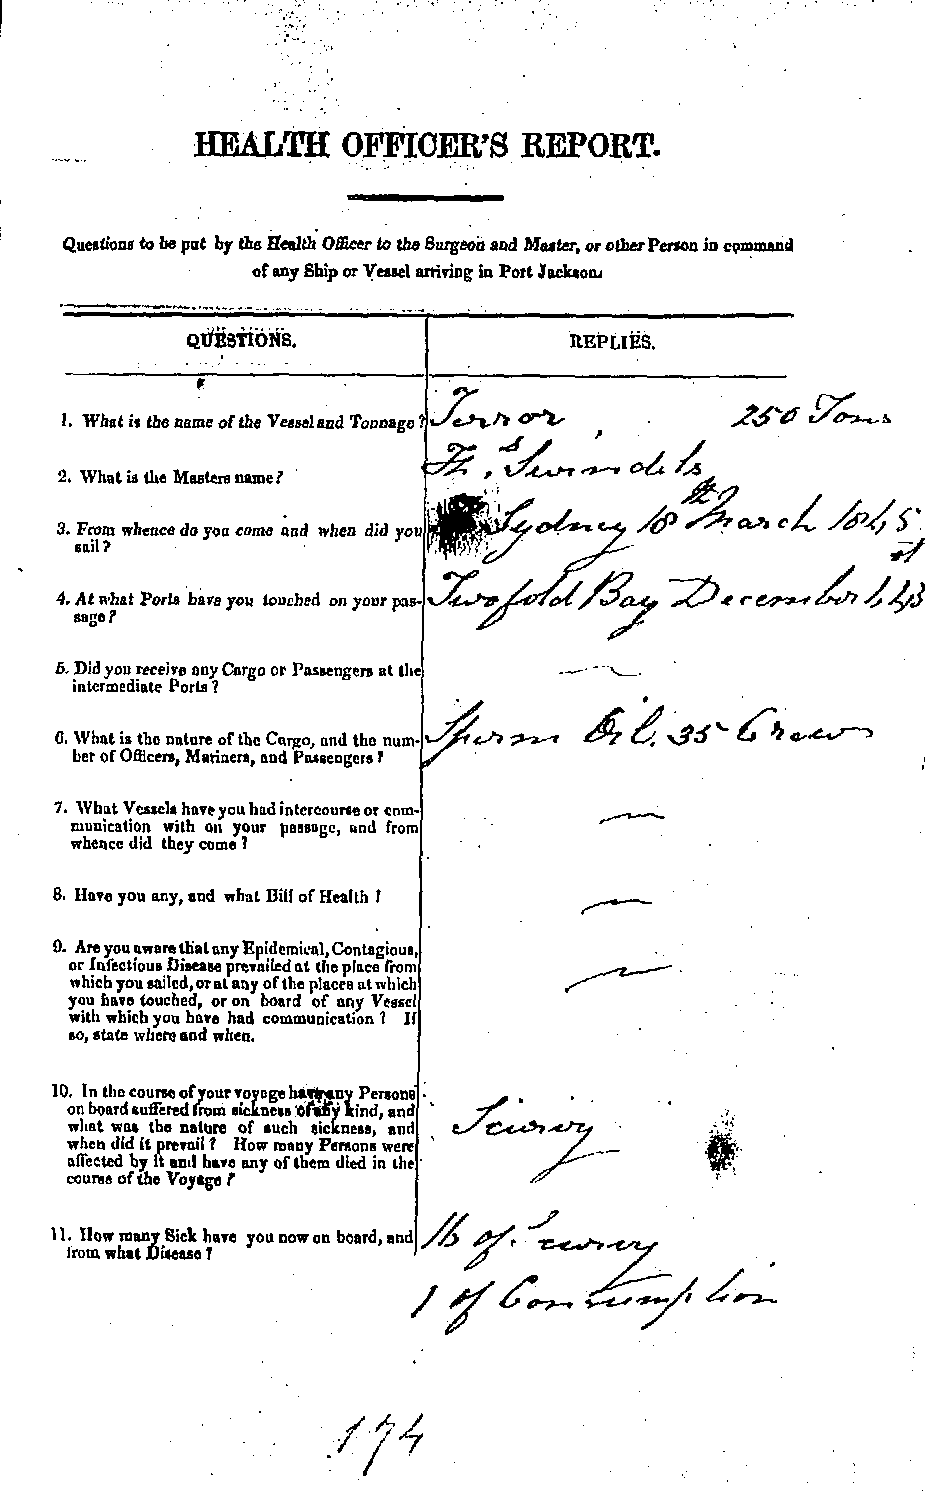 HEALTH OFFICER'S REPORT.
Questions to be put by the Health Officer to the Surgeon and Master, or other Person in command
of any Ship or Vessel arriving in Port Jackson.
QUESTIONS. REPLIES.
1. What is the name of the Vessel and Tonnage? Terror, 250 Tons
2. What is the Masters name? Swindels
3. From whence do you come and when did you Sydney 18th March 1845
sail?
4. At what Ports have you touched on your pas- Twofold Bay December
sage?
5. Did you receive any Cargo or Passengers at the —
intermediate Ports?
6. What is the nature of the Cargo, and the num- Sperm Oil. 35 Crew
ber of Officers, Mariners, and Passengers?
7. What Vessels have you had intercourse or com- —
munication with on your passage, and from
whence did they come?
8. Have you any, and what Bill of Health? —
9. Are you aware that any Epidemical, Contagious, —
or Infectious Disease prevailed at the place from
which you sailed, or at any of the places at which
you have touched, or on board of any Vessel
with which you have had communication? If
so, state where and when.
10. In the course of your voyage have any Persons
on board suffered from sickness of any kind, and
what was the nature of such sickness, and Scurvy
when did it prevail? How many Persons were
affected by it and have any of them died in the
course of the Voyage?
11. How many Sick have you now on board, and 16 of Scurvy
from what Disease?
1 of Consumption
174